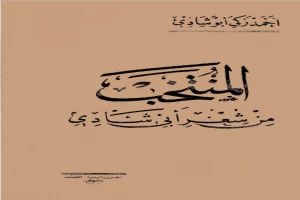 احمد زكي ابو شادي
المنتخب
من شعر أبي شادي